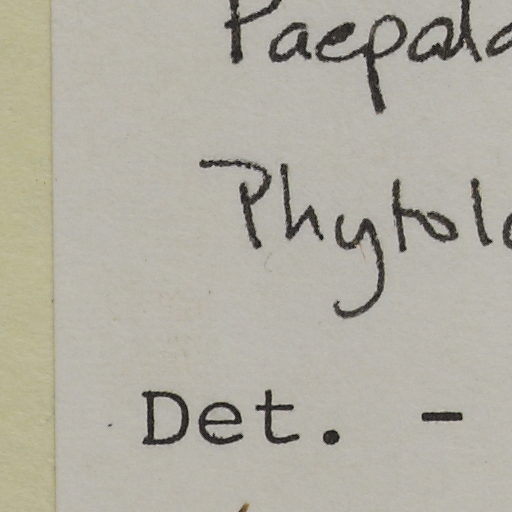 Paepala
Phytola
Det. -